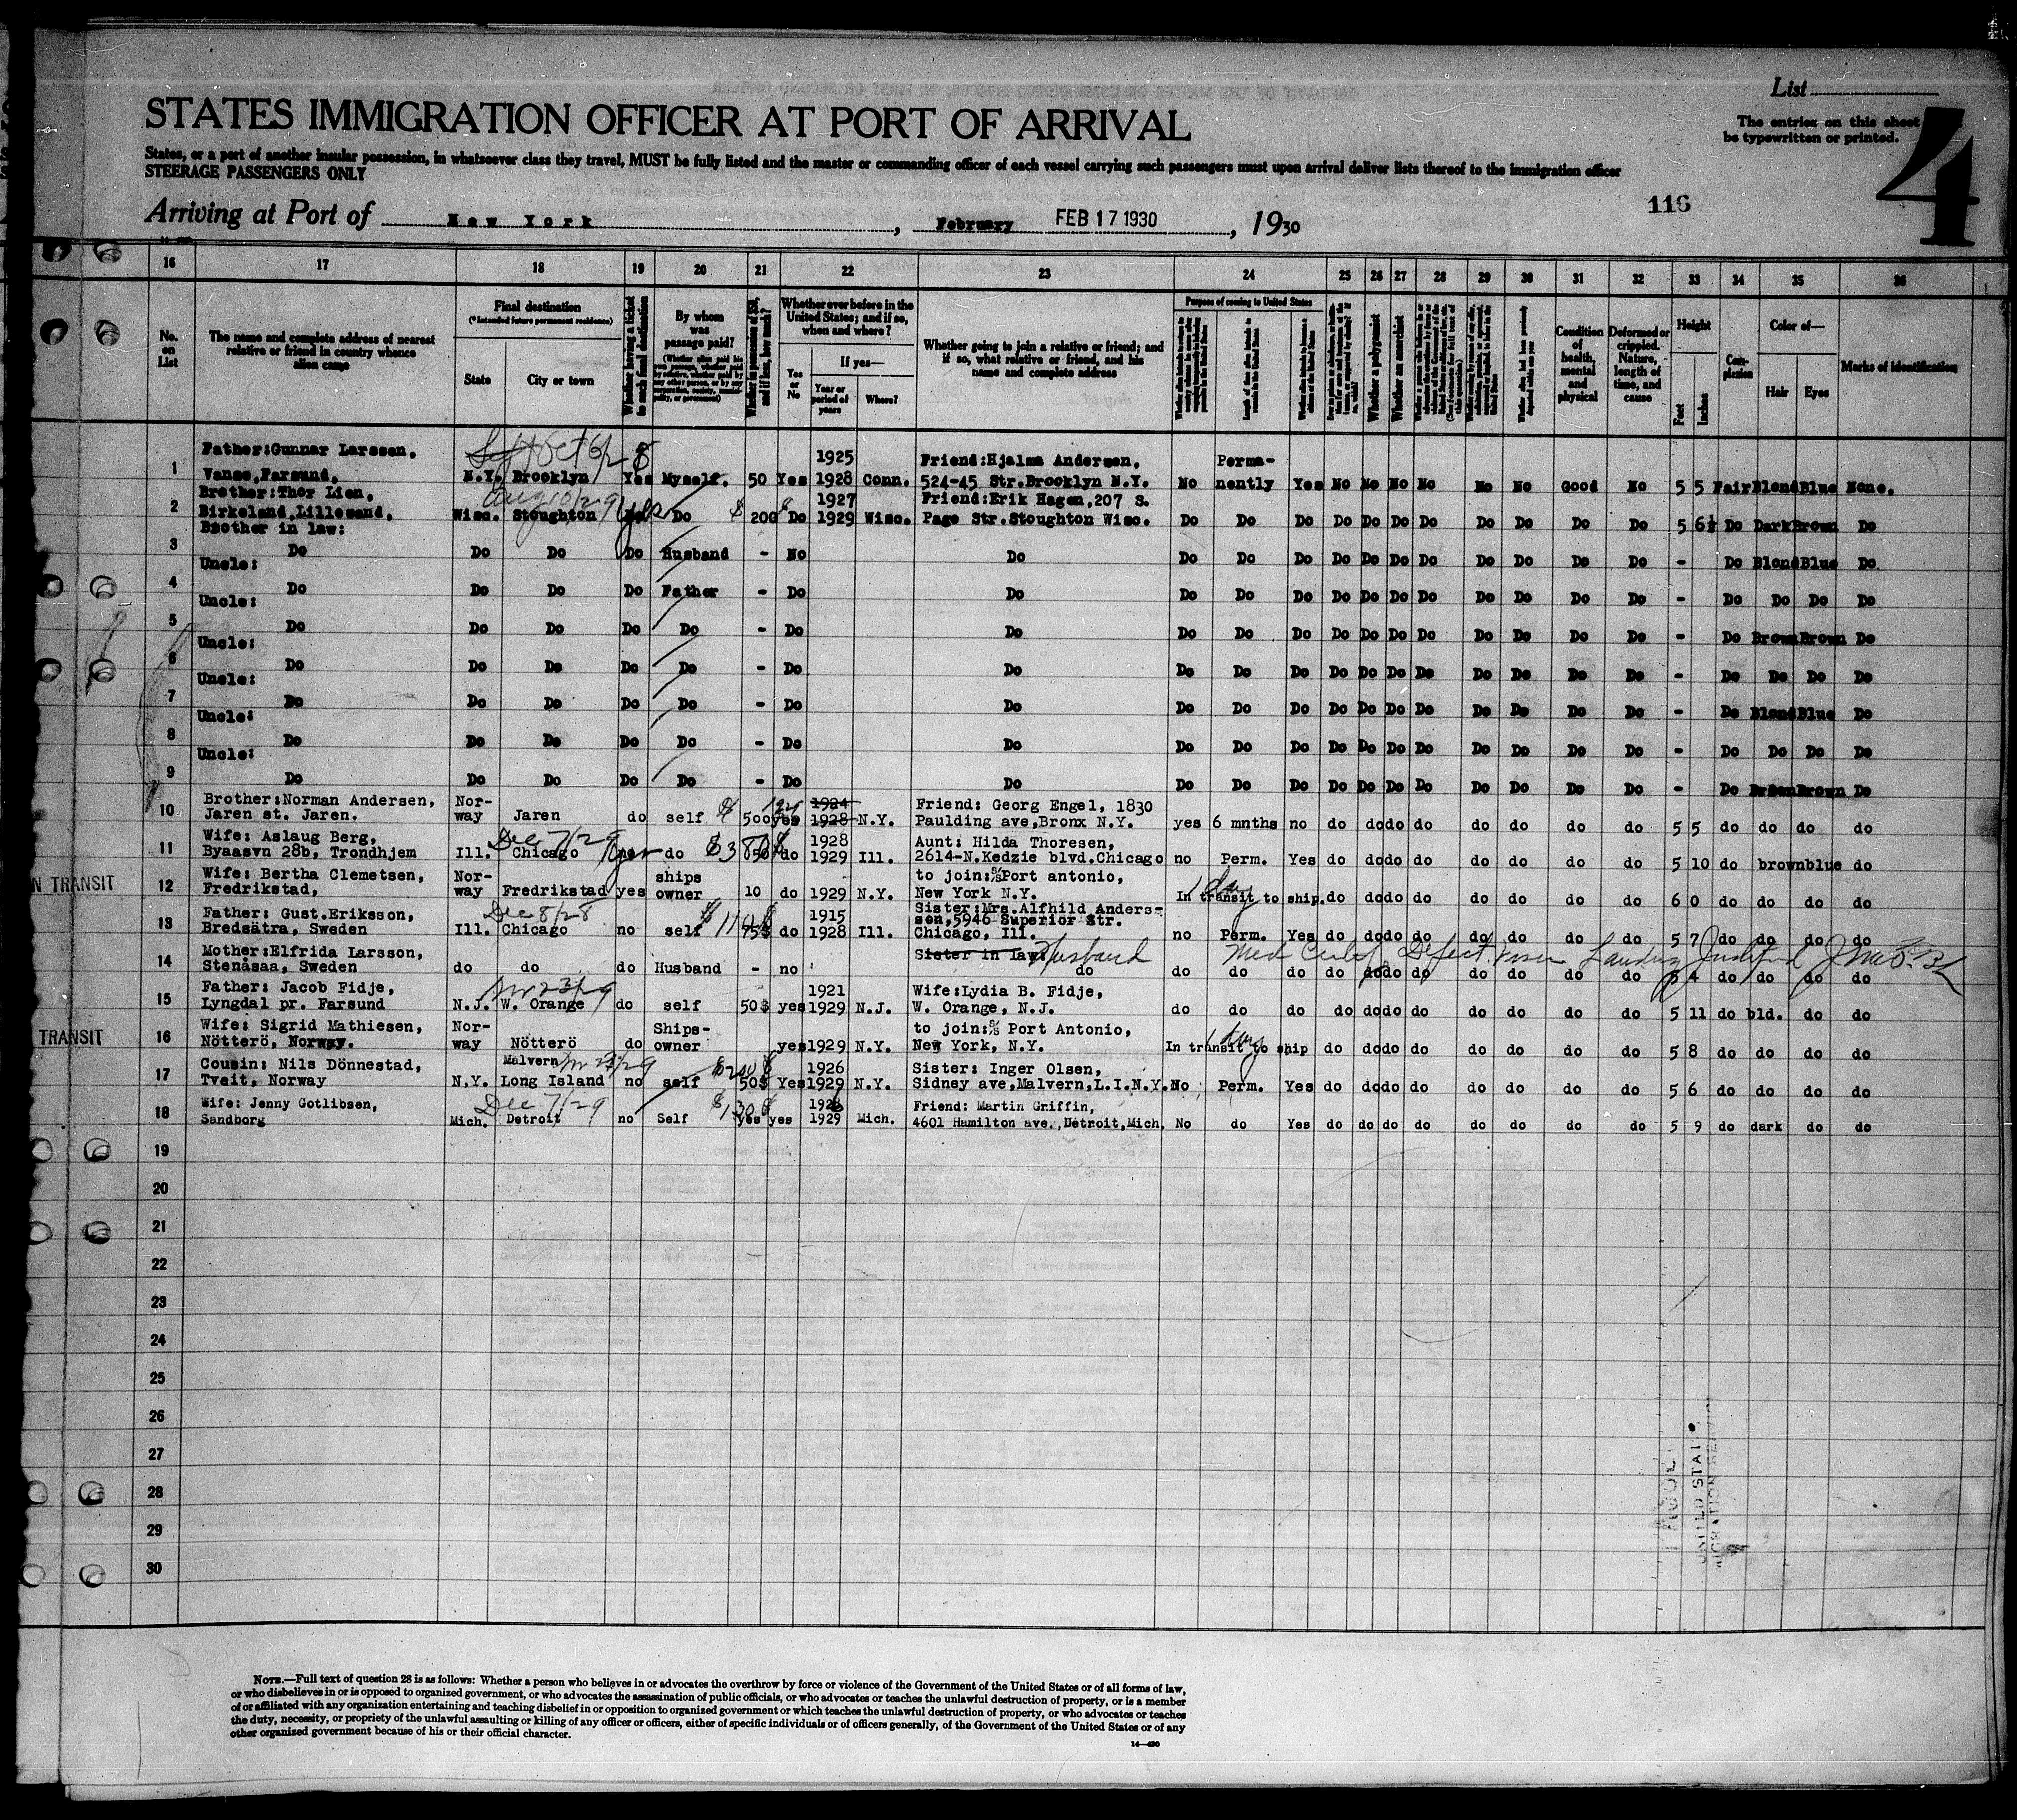 List
STATES IMMIGRATION OFFICER AT PORT OF ARRIVAL
The entries on this sheet
be typewritten or printed.
4
States, or a port of another insular possession, in whatsoever class they travel, MUST be fully listed and the master or commanding officer of each vessel carrying such passengers must upon arrival deliver lists thereof to the immigration officer
STEERAGE PASSENGERS ONLY
116
Arriving at Port of New York, February FEB 17 1930, 1930
16 17 18 19 20 21 22 23 24 25 26 27 28 29 30 31 32 33 34 35 36
No. on List
The name and complete address of nearest relative or friend in country whence alien came
Final destination
(*Intended future permanent residence)
State City or town
Whether having a ticket to such final destination
By whom was passage paid?
Whether in possession of $50, and if less, how much?
Whether ever before in the United States; and if so, when and where?
Yes or No
If yes—
Year or period of years Where?
Whether going to join a relative or friend; and if so, what relative or friend, and his name and complete address
Purpose of coming to United States
Whether a polygamist
Whether an anarchist
Condition of health, mental and physical
Deformed or crippled. Nature, length of time, and cause
Height
Feet Inches
Complexion
Color of—
Hair Eyes
Marks of identification
Father:Gunnar Larssen, 1925 Friend:Hjalma Andersen, Perma-
1 Vanse,Farsund, N.Y. Brooklyn Yes Myself. 50 Yes 1928 Conn. 524-45 Str.Brooklyn N.Y. No nently Yes No No No No No No Good No 5 5 Fair Blond Blue None.
Brother:Thor Lien, Aug 10/29 1927 Friend:Erik Hagen,207 S.
2 Birkeland,Lillesand, Wisc. Stoughton Do $ 200 Do 1929 Wisc. Page Str.Stoughton Wisc. Do Do Do Do Do Do Do Do Do Do Do 5 6½ Do Dark Brown Do
Brother in law:
3 Do Do Do Do Husband - No Do Do Do Do Do Do Do Do Do Do Do Do - Do Blond Blue Do
Uncle:
4 Do Do Do Do Father - Do Do Do Do Do Do Do Do Do Do Do Do Do - Do Do Do Do
Uncle:
5 Do Do Do Do Do - Do Do Do Do Do Do Do Do Do Do Do Do Do - Do Brown Brown Do
Uncle:
6 Do Do Do Do Do - Do Do Do Do Do Do Do Do Do Do Do Do Do - Do Do Do Do
Uncle:
7 Do Do Do Do Do - Do Do Do Do Do Do Do Do Do Do Do Do Do - Do Blond Blue Do
Uncle:
8 Do Do Do Do Do - Do Do Do Do Do Do Do Do Do Do Do Do Do - Do Do Do Do
Uncle:
9 Do Do Do Do Do - Do Do Do Do Do Do Do Do Do Do Do Do Do - Do Brown Brown Do
Brother:Norman Andersen, Nor- 1924 Friend: Georg Engel, 1830
10 Jaren st. Jaren. way Jaren do self $ 500 yes 1928 N.Y. Paulding ave,Bronx N.Y. yes 6 mnths no do do do do do do do do 5 5 do do do do
Wife: Aslaug Berg, Dec 7/29 1928 Aunt: Hilda Thoresen,
11 Byaasvn 28b, Trondhjem Ill. Chicago do do 1929 Ill. 2614-N.Kedzie blvd.Chicago no Perm. Yes do do do do do do do do 5 10 do brown blue do
Wife: Bertha Clemetsen, Nor- ships to join:S/S Port antonio, 1 day
N TRANSIT 12 Fredrikstad, way Fredrikstad yes owner 10 do 1929 N.Y. New York N.Y. In transit to ship. do do do do do do do do 6 0 do do do do
Father: Gust.Eriksson, Dec 8/28 $110$ 1915 Sister:Mrs.Alfhild Anders-
son,5946 Superior Str.
13 Bredsätra, Sweden Ill. Chicago no self 75$ do 1928 Ill. Chicago, Ill. no Perm. Yes do do do do do do do do 5 7 do do do do
Mother:Elfrida Larsson, Sister in law: Husband Med Certf Defect. vision Landing Justified
14 Stenåsaa, Sweden do do do Husband - no do do do do do do do do do do do do 5 4 do do do do
Father: Jacob Fidje, 1921 Wife:Lydia B. Fidje,
15 Lyngdal pr. Farsund N.J. W. Orange do self 50$ yes 1929 N.J. W. Orange, N.J. do do do do do do do do do do do 5 11 do bld. do do
Wife: Sigrid Mathiesen, Nor- Ships- to join:S/S Port Antonio, 1 day
TRANSIT 16 Nötterö, Norway. way Nötterö do owner yes 1929 N.Y. New York, N.Y. In transit to ship do do do do do do do do 5 8 do do do do
Cousin: Nils Dönnestad, Malvern $200$ 1926 Sister: Inger Olsen,
17 Tveit, Norway N.Y. Long Island no self 50$ Yes 1929 N.Y. Sidney ave,Malvern,L.I.N.Y. No Perm. Yes do do do do do do do do 5 6 do do do do
Wife: Jenny Gotlibsen, Dec 7/29 $130$ Friend: Martin Griffin,
18 Sandborg Mich. Detroit no Self yes yes 1929 Mich. 4601 Hamilton ave.,Detroit,Mich. No do Yes do do do do do do do do 5 9 do dark do do
19
20
21
22
23
24
25
26
27
28
29
30
NOTE.—Full text of question 28 is as follows: Whether a person who believes in or advocates the overthrow by force or violence of the Government of the United States or of all forms of law,
or who disbelieves in or is opposed to organized government, or who advocates the assassination of public officials, or who advocates or teaches the unlawful destruction of property, or is a member
of or affiliated with any organization entertaining and teaching disbelief in or opposition to organized government or which teaches the unlawful destruction of property, or who advocates or teaches
the duty, necessity, or propriety of the unlawful assaulting or killing of any officer or officers, either of specific individuals or of officers generally, of the Government of the United States or of any
other organized government because of his or their official character.
14—430